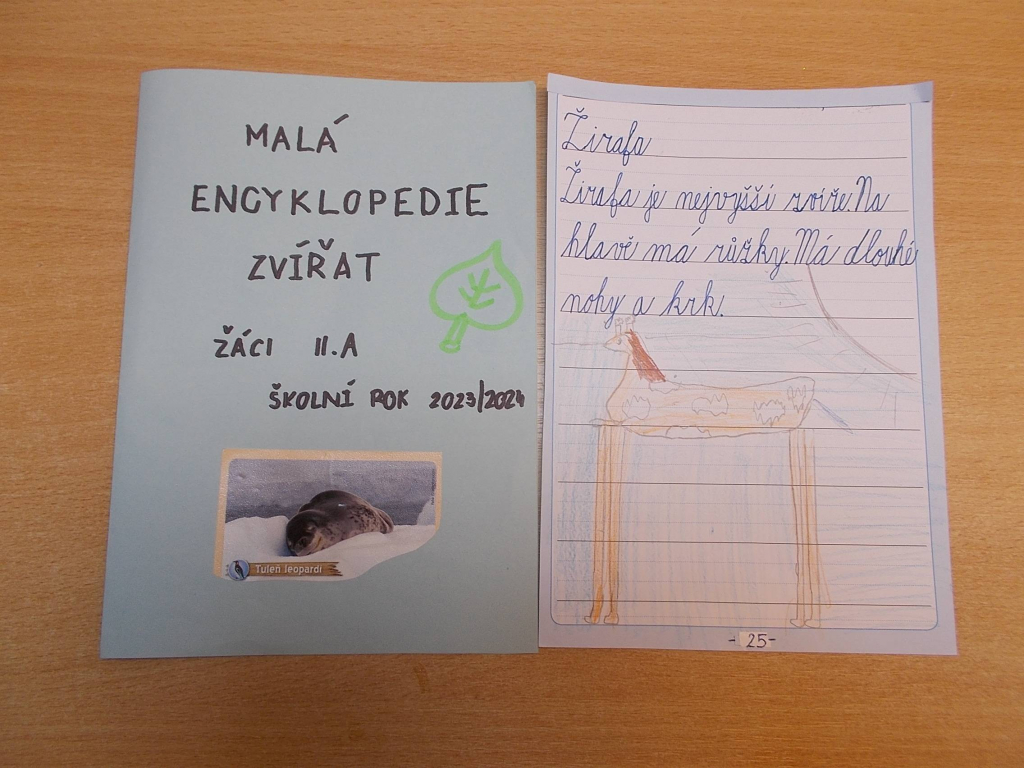 MALÁ
ENCYKLOPEDIE
ZVÍŘAT
ŽÁCI II.A
ŠKOLNÍ ROK 2023/2024
Tuleň leopardí
Žirafa
Žirafa je nejvyšší zvíře. Na
hlavě má růžky. Má dlouhé
nohy a krk.
- 25 -